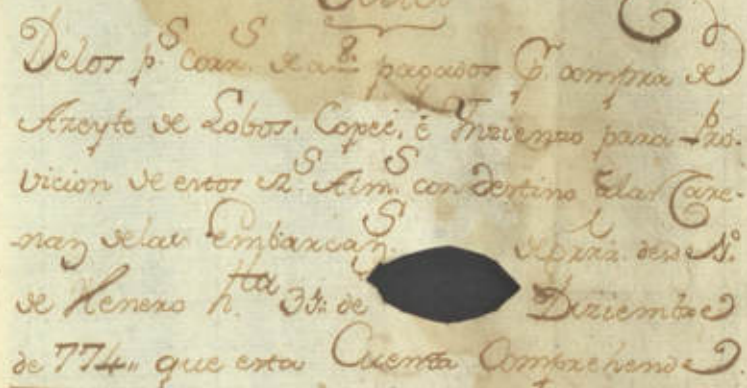 Delos p.s corr.s de a 8. pagados p. compra de
Azeyte de Lobos, Copeé, é Ynzienzo para Pro-
vicion de estos R.s Alm.s con destino alas Care-
nas delas Embarcan.s desde 1.º
de Henero h.ta 31: de Diziembre
de 774,, que esta Cuenta Comprehende